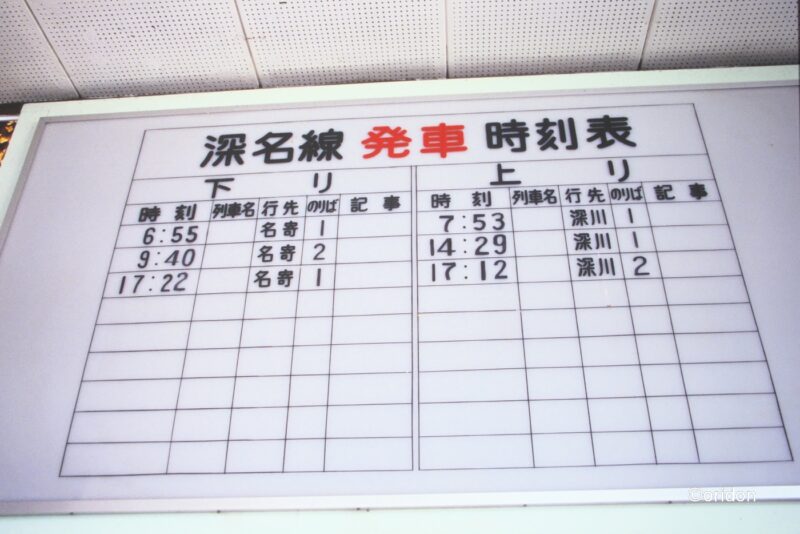 深名線 発車 時刻表
下り 上り
時刻 列車名 行先 のりば 記事 時刻 列車名 行先 のりば 記事
6:55 名寄 1 7:53 深川 1
9:40 名寄 2 14:29 深川 1
17:22 名寄 1 17:12 深川 2
©oridon